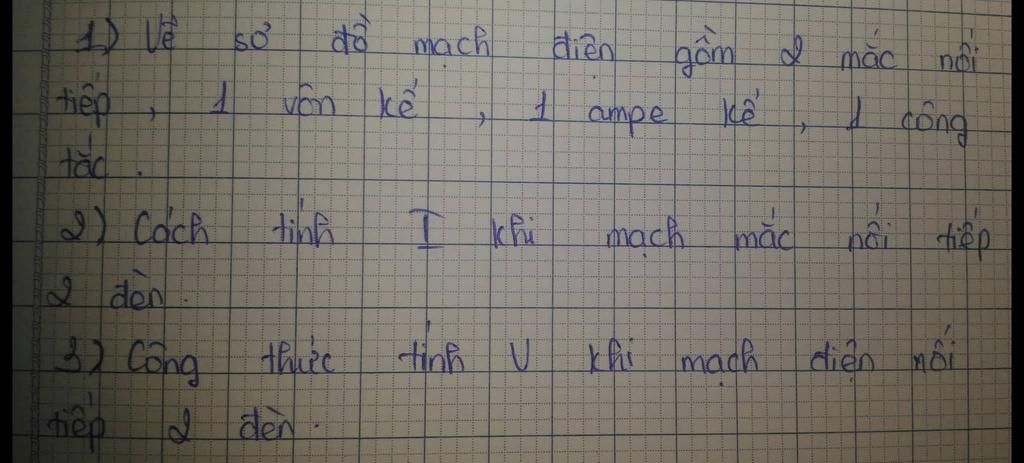 1) Vẽ sơ đồ mạch điện gồm 2 mắc nối
tiếp, 1 vôn kế, 1 ampe kế, 1 công
tắc.
2) Cách tính I khi mạch mắc nối tiếp
2 đèn.
3) Công thức tính U khi mạch điện nối
tiếp 2 đèn.